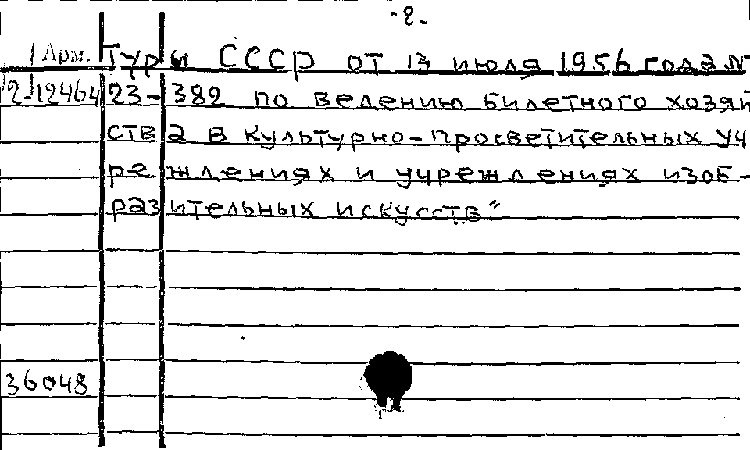 -2.
1 Арм. туры СССР от 13 июля 1956 года N
2-12464 23-382 по ведению билетного хозяй
ства в культурно-просветительных уч
реждениях и учреждениях изоб-
разительных искусств"
36048